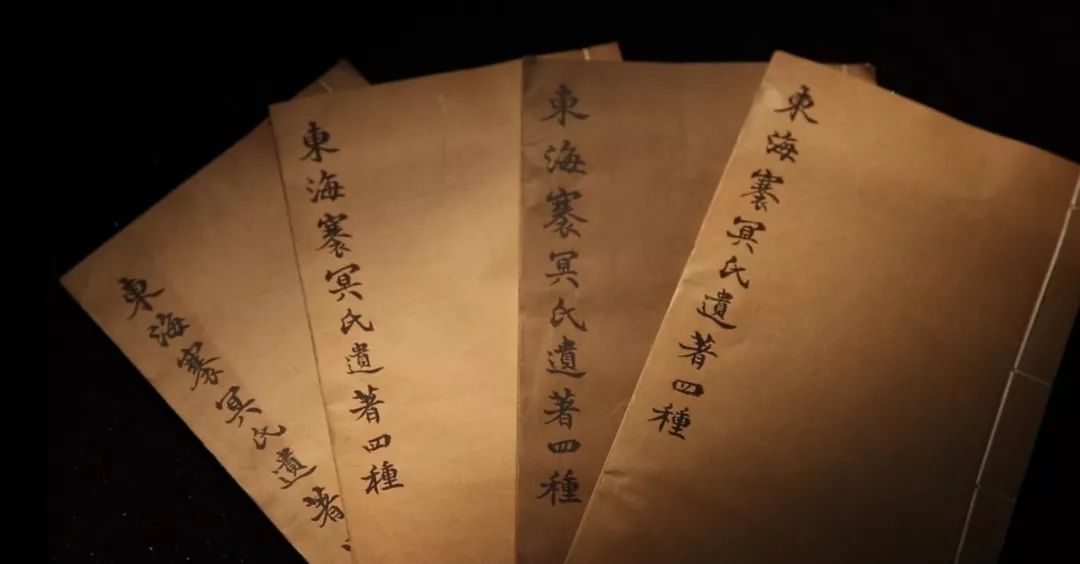 東海褰冥氏遺著四種
東海褰冥氏遺著四種
東海褰冥氏遺著四種
東海褰冥氏遺著